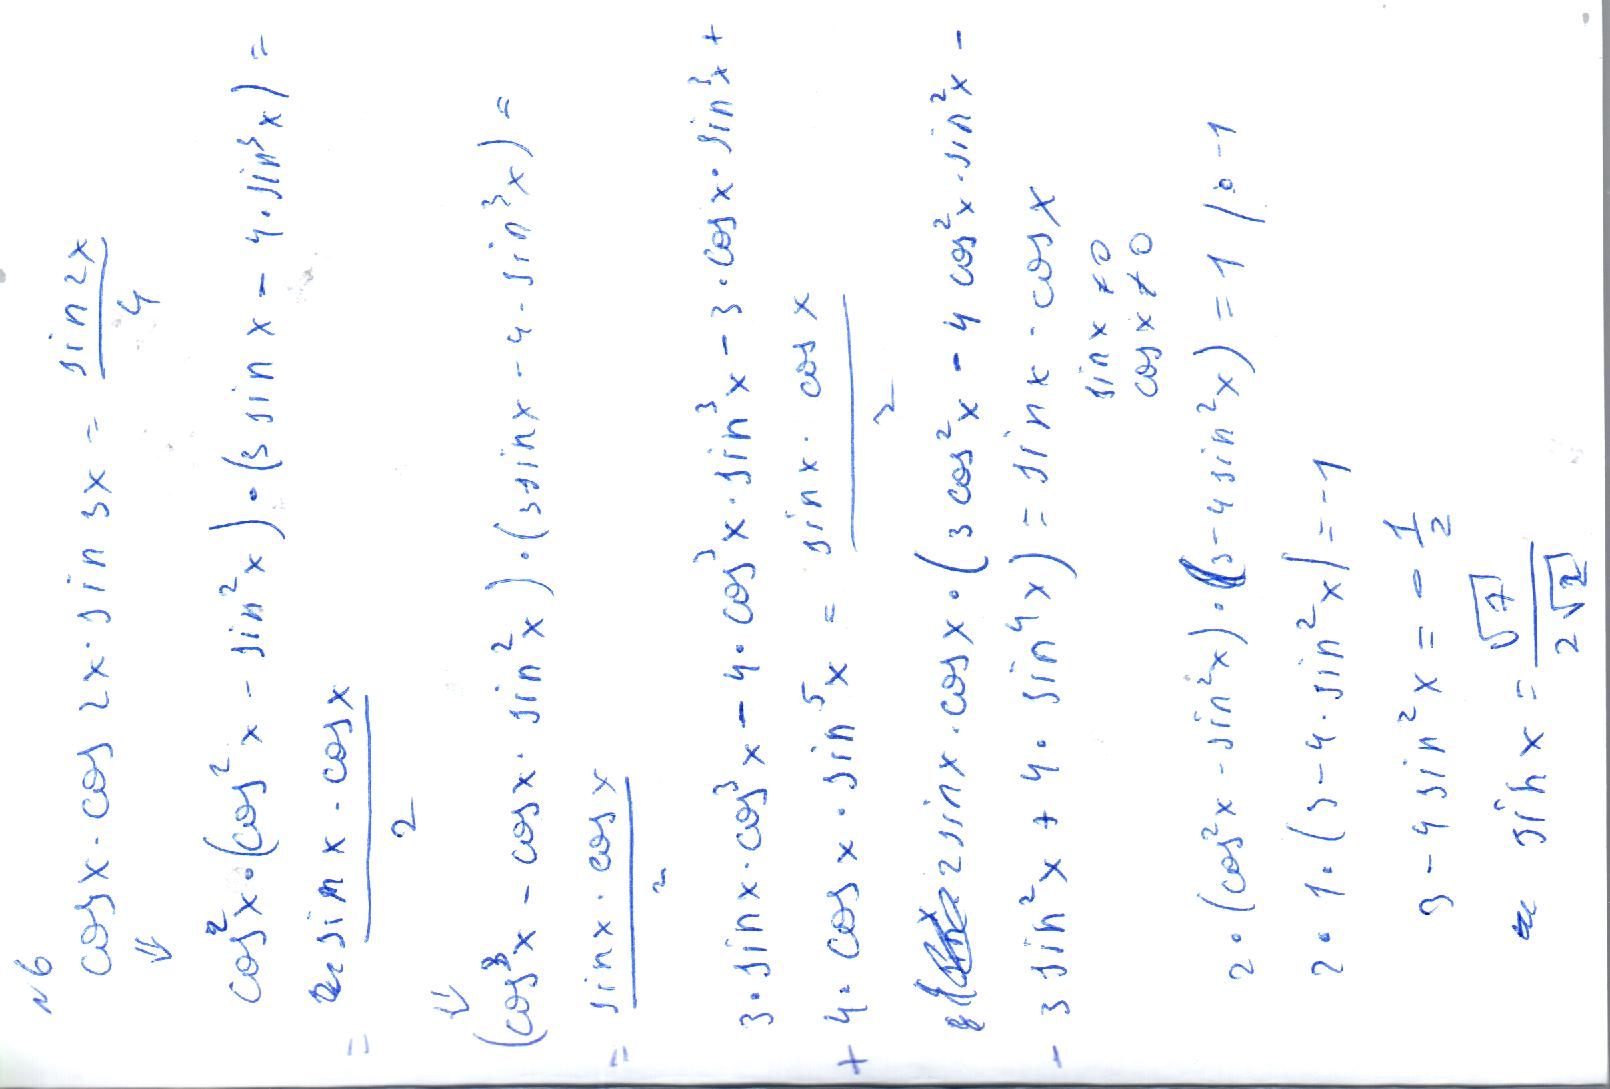 N6
cosx · cos 2x · sin 3x = sin2x/4
⇓
cos²x · (cos²x - sin²x) · (3 sin x - 4 · sin³x) =
= sin x · cosx/2
⇓
(cos³x - cosx · sin²x) · (3sinx - 4 - sin³x) =
= sinx · cosx/2
3 · sinx · cos³x - 4 · cos³x · sin³x - 3 · cosx · sin³x +
+ 4 · cosx · sin⁵x = sinx · cosx/2
2sinx · cosx · (3cos²x - 4cos²x · sin²x -
- 3sin²x + 4 · sin⁴x) = sinx · cosx
sinx ≠ 0
cosx ≠ 0
2 · (cos²x - sin²x) · (3 - 4sin²x) = 1 / · -1
2 · 1 · (3 - 4 · sin²x) = -1
3 - 4sin²x = -1/2
sinx = √7/2√2